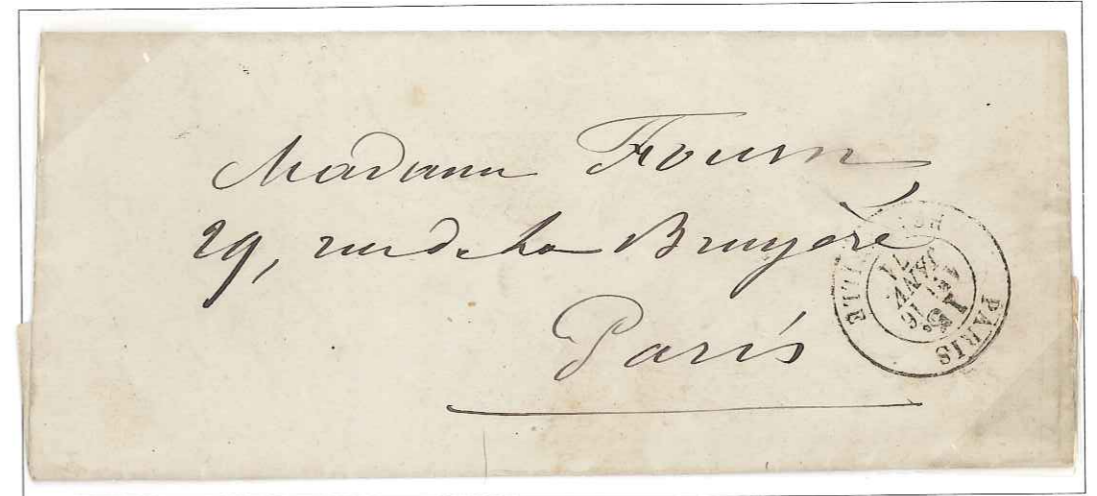 Madame Fourn
29, rue de La Bruyère
Paris
PARIS
16
JANV.
71